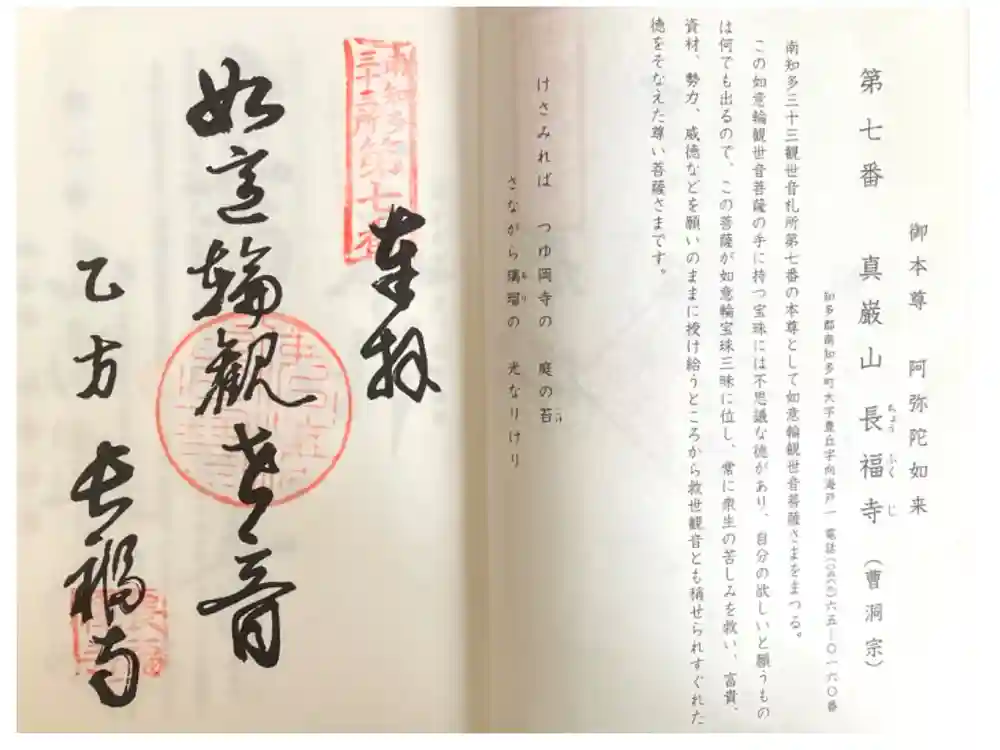 御本尊 阿弥陀如来
第七番 真巌山 長福寺（曹洞宗）
ちょう ふく じ
知多郡南知多町大字豊丘字向海戸一 電話(〇五六九)六五―〇一六〇番
南知多三十三観世音札所第七番の本尊として如意輪観世音菩薩さまをまつる。
この如意輪観世音菩薩の手に持つ宝珠には不思議な徳があり、自分の欲しいと願うもの
は何でも出るので、この菩薩が如意輪宝珠三昧に位し、常に衆生の苦しみを救い、富貴、
資材、勢力、威徳などを願いのままに授け給うところから救世観音とも称せられすぐれた
徳をそなえた尊い菩薩さまです。
けさみれば つゆ岡寺の 庭の苔
こけ
さながら璃瑠の 光なりけり
るり
奉拝
南知多
三十三所
第七番
如意輪観世音
乙方 長福寺